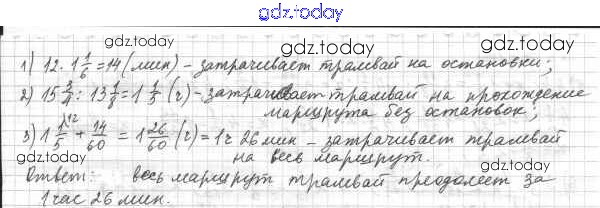 gdz.today
gdz.today
gdz.today
1) 12 · 1 1/6 = 14 (мин) – затрачивает трамвай на остановки;
2) 15 3/4 : 13 1/8 = 1 1/5 (ч) – затрачивает трамвай на прохождение
маршрута без остановок;
gdz.today
3) 1 1/5 \12 + 14/60 = 1 26/60 (ч) = 1 ч 26 мин – затрачивает трамвай
на весь маршрут.
gdz.today
gdz.today
Ответ: весь маршрут трамвай преодолеет за
1 час 26 мин.
gdz.today